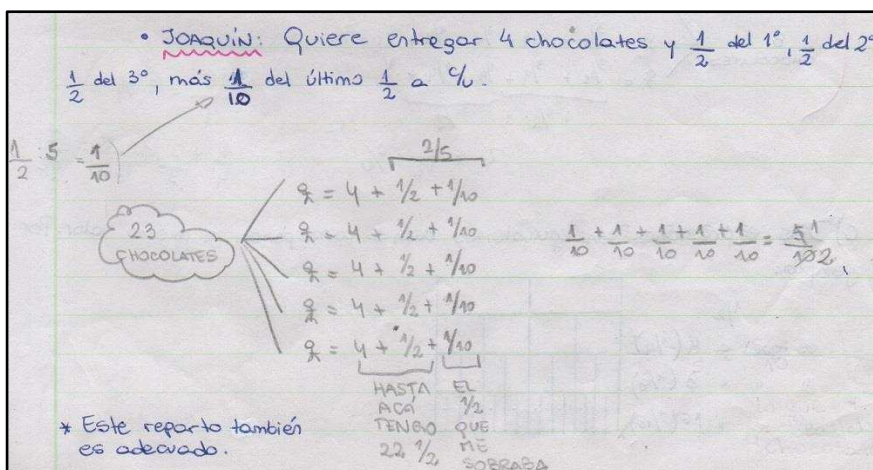 • JOAQUÍN: Quiere entregar 4 chocolates y 1/2 del 1º, 1/2 del 2º
1/2 del 3º, más 1/10 del último 1/2 a c/u.
1/2 : 5 = 1/10
2/5
23
CHOCOLATES
= 4 + 1/2 + 1/10
= 4 + 1/2 + 1/10
= 4 + 1/2 + 1/10
= 4 + 1/2 + 1/10
= 4 + 1/2 + 1/10
1/10 + 1/10 + 1/10 + 1/10 + 1/10 = 5/10 1/2
HASTA
ACÁ
TENGO
22 1/2
EL
1/2
QUE
ME
SOBRABA
* Este reparto también
es adecuado.